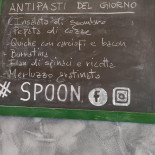 ANTIPASTI DEL GIORNO
L'Insalata di
Pepata di cozze
Quiche con carciofi e bacon
Flan di spinaci e ricotta
Merluzzo
# SPOON